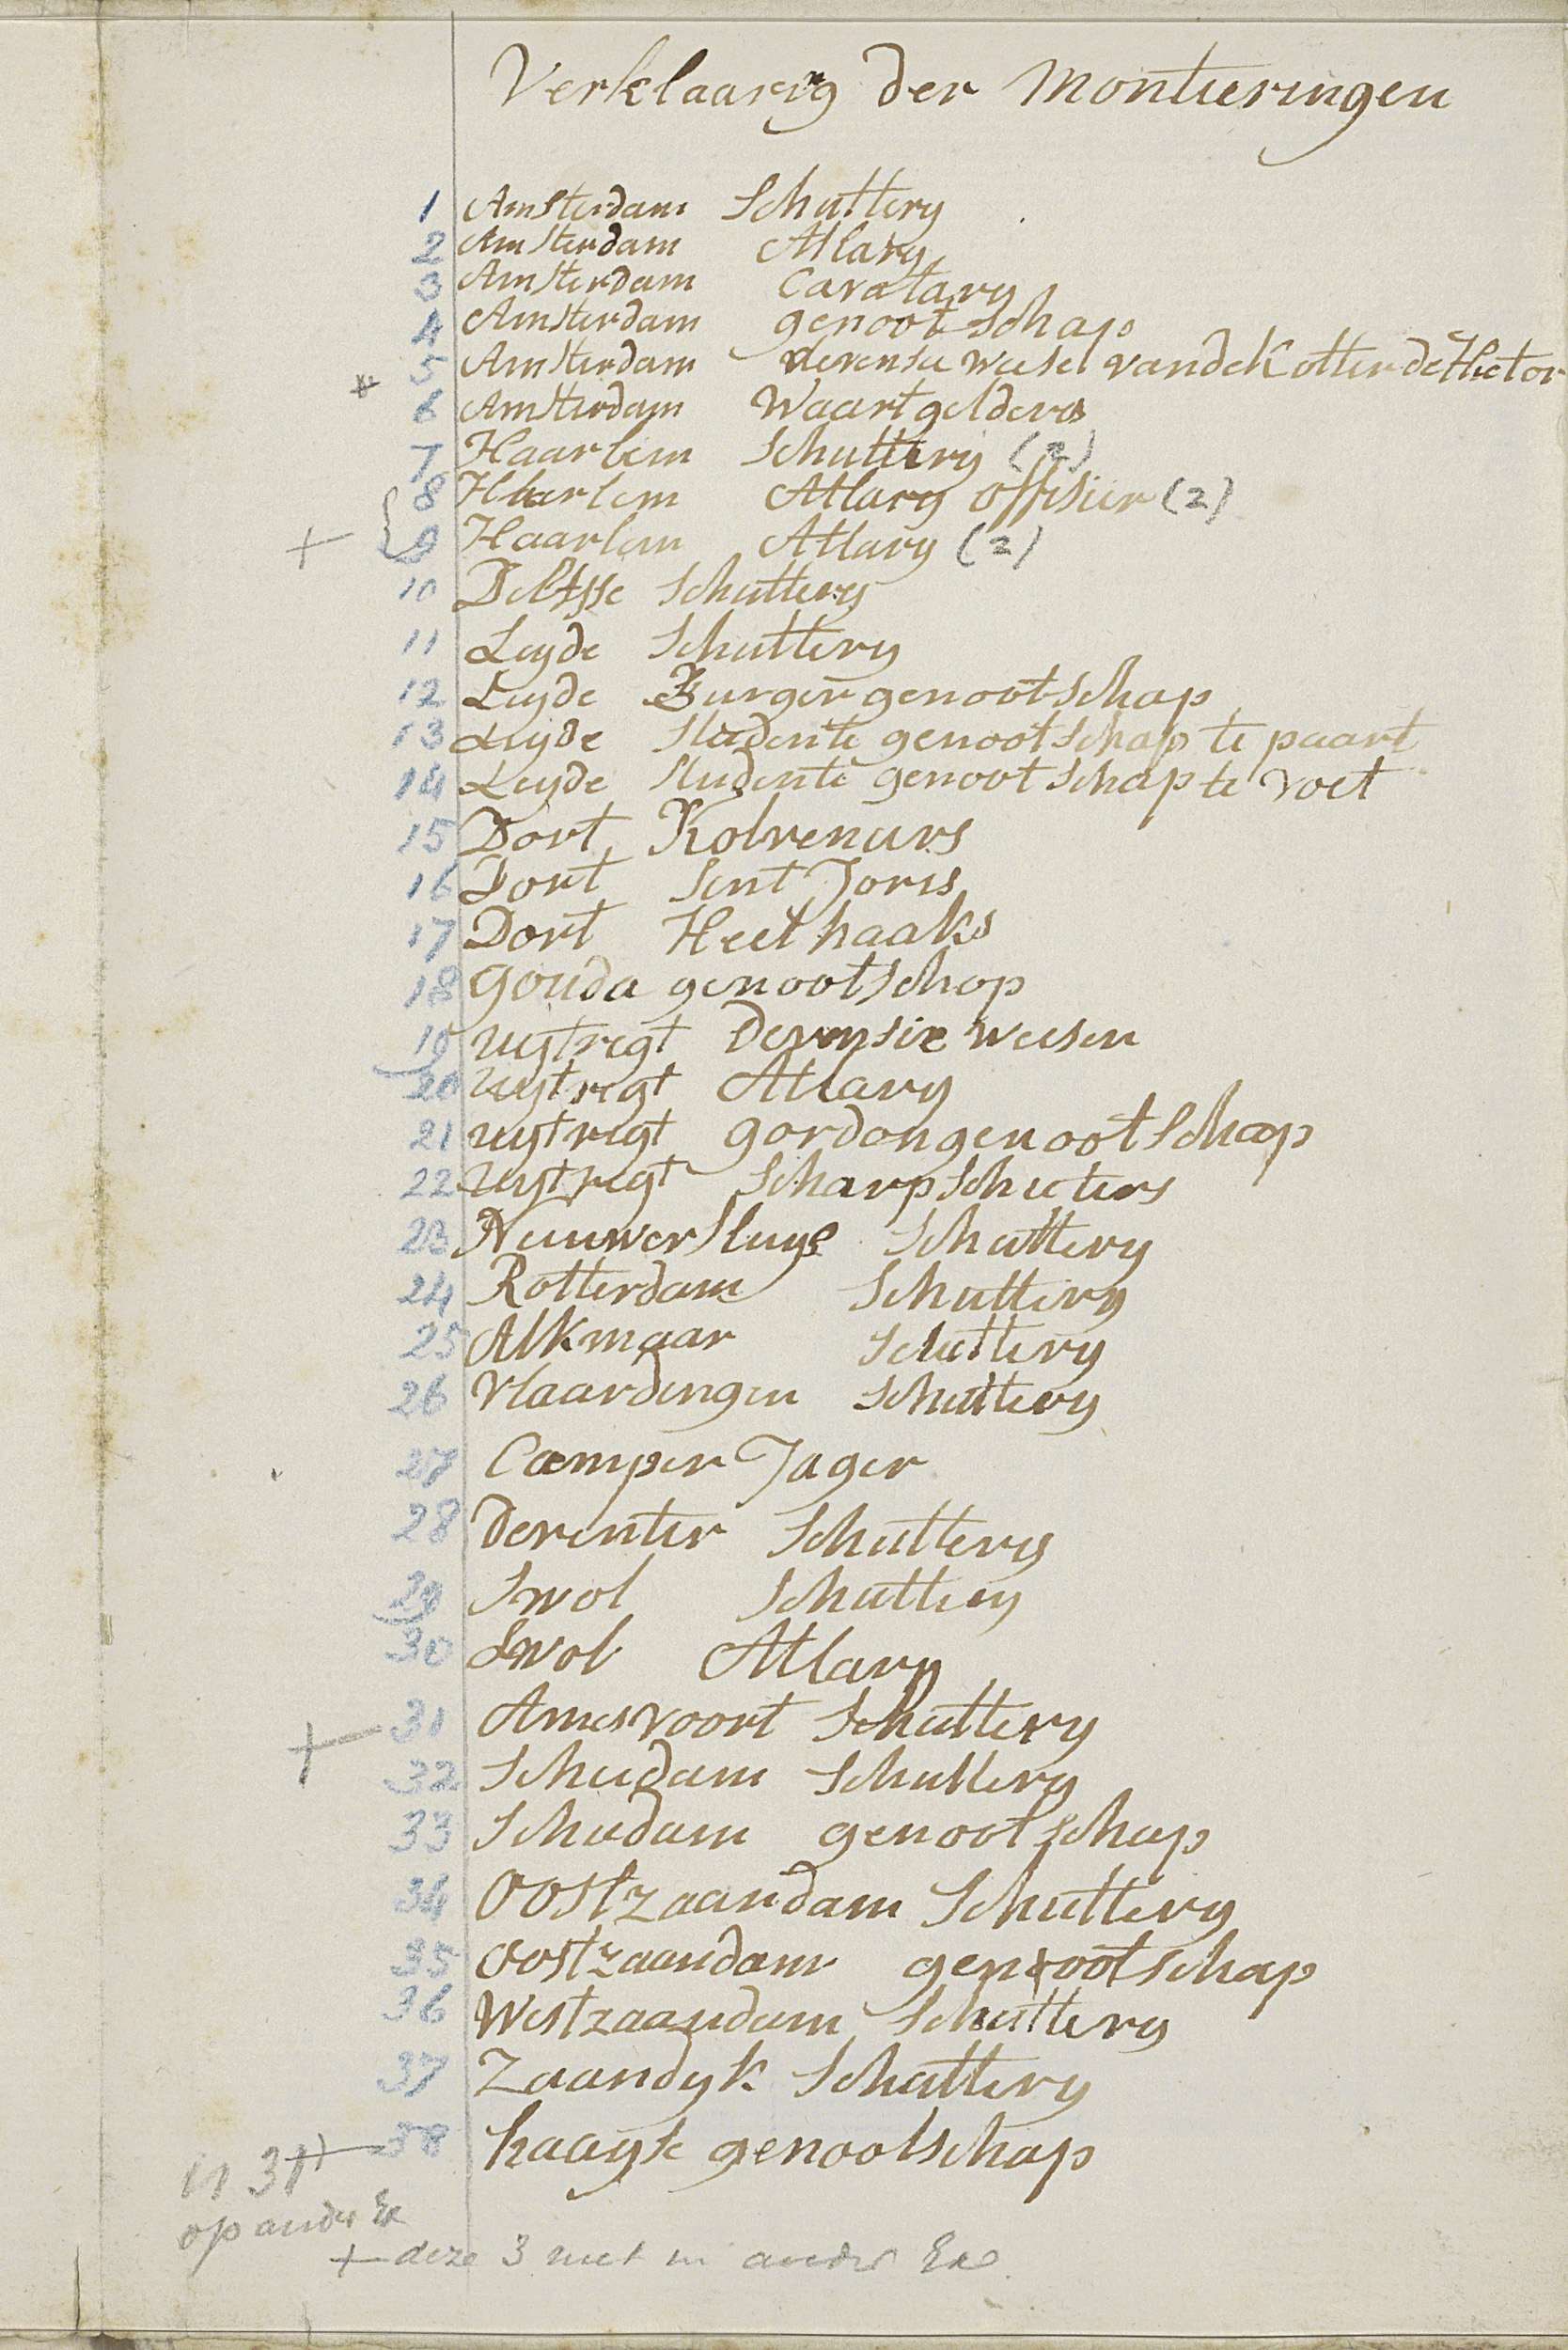 Verklaaring der Montieringen
1 Amsterdam Schuttery
2 Amsterdam Atlary
3 Amsterdam Cavalary
4 Amsterdam genootschap
5 Amsterdam devensie weesen van de Kotter de Hector
* 6 Amsterdam Waartgelders
7 Haarlem Schuttery (2)
8 Haarlem Atlary offisier (2)
+ { 9 Haarlem Atlary (2)
10 Delfsse Schuttery
11 Leyde Schuttery
12 Leyde Burger genootschap
13 Leyde Studente genootschap te paart
14 Leyde Studente genootschap te voet
15 Dort Kolveniers
16 Dort Sint Joris
17 Dort Heelhaaks
18 Gouda genootschop
19 uytregt Devensie weesen
20 uytregt Atlary
21 uytregt gordon genootschap
22 uytregt Scharpschieters
23 Nieuwersluys Schuttery
24 Rotterdam Schuttery
25 Alkmaar Schuttery
26 Vlaardingen Schuttery
27 Camper Jager
28 Deventer Schuttery
29 Swol Schuttery
30 Swol Atlary
+ 31 Amesvoort Schuttery
32 Schiedam Schuttery
33 Schiedam genootschap
34 Oostzaandam Schuttery
35 Oostzaandam genootschap
36 Westzaandam Schuttery
37 Zaandyk Schuttery
+ 38 haagse genootschap
is 31
op ander Ex
+ deze 3 niet in ander Ex